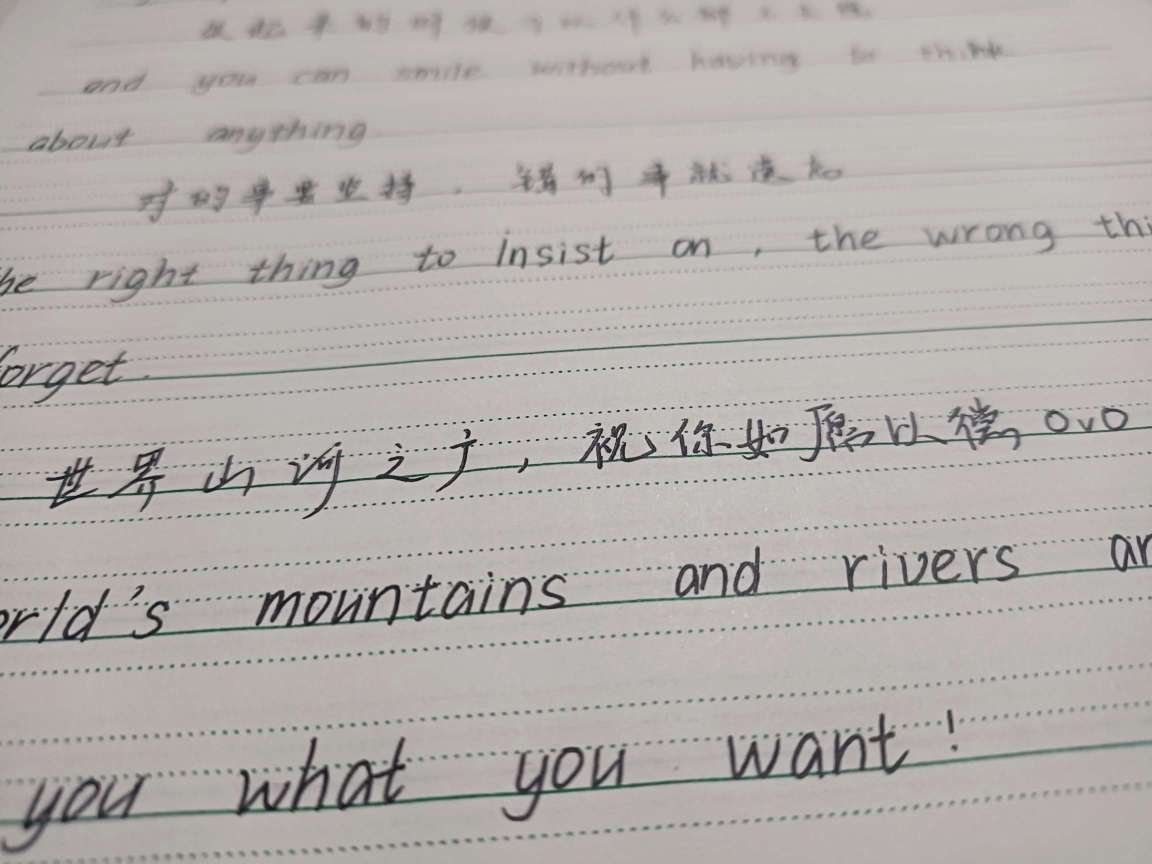 and you can smile without having to think
about anything
对的事要坚持，错的事就遗忘
he right thing to insist on, the wrong thi
forget.
世界山河之广，祝你如愿以偿OvO
orld's mountains and rivers ar
you what you want!